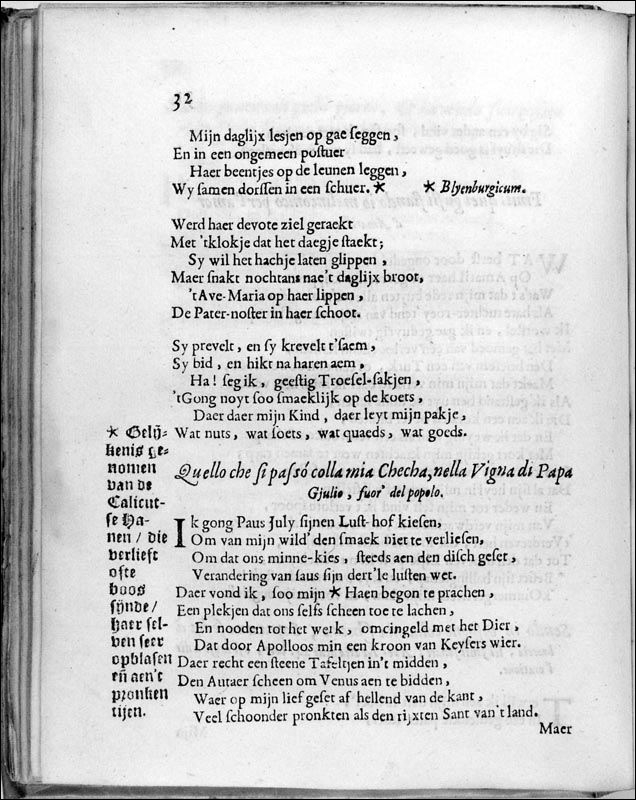 32
Mijn daglijx lesjen op gae seggen,
En in een ongemeen postuer
Haer beentjes op de leunen leggen,
Wy samen dorssen in een schuer. * * Blyenburgicum.
Werd haer devote ziel geraekt
Met 'tklokje dat het daegje staekt;
Sy wil het hachje laten glippen,
Maer snakt nochtans nae't daglijx broot,
'tAve-Maria op haer lippen,
De Pater-noster in haer schoot.
Sy prevelt, en sy krevelt t'saem,
Sy bid, en hikt na haren aem,
Ha! seg ik, geestig Troesel-sakjen,
'tGong noyt soo smaeklijk op de koets,
Daer daer mijn Kind, daer leyt mijn pakje,
Wat nuts, wat soets, wat quaeds, wat goeds.
Quello che si passó colla mia Checha, nella Vigna di Papa
Gjulio, fuor' del popolo.
Ik gong Paus July sijnen Lust-hof kiesen,
Om van mijn wild' den smaek niet te verliesen,
Om dat ons minne-kies, steeds aen den disch geset,
Verandering van saus sijn dert'le lusten wet.
Daer vond ik, soo mijn * Haen begon te prachen,
Een plekjen dat ons selfs scheen toe te lachen,
En nooden tot het werk, omcingeld met het Dier,
Dat door Apolloos min een kroon van Keysers wier.
Daer recht een steene Tafeltjen in't midden,
Den Autaer scheen om Venus aen te bidden,
Waer op mijn lief geset af hellend van de kant,
Veel schoonder pronkten als den rijxten Sant van't land.
Maer
* Gelij-
kenis ge-
nomen
van de
Calicut-
se Ha-
nen / die
verlieft
ofte
boos
sijnde /
haer sel-
ven seer
opblasen
eñ aen't
pronken
tijen.